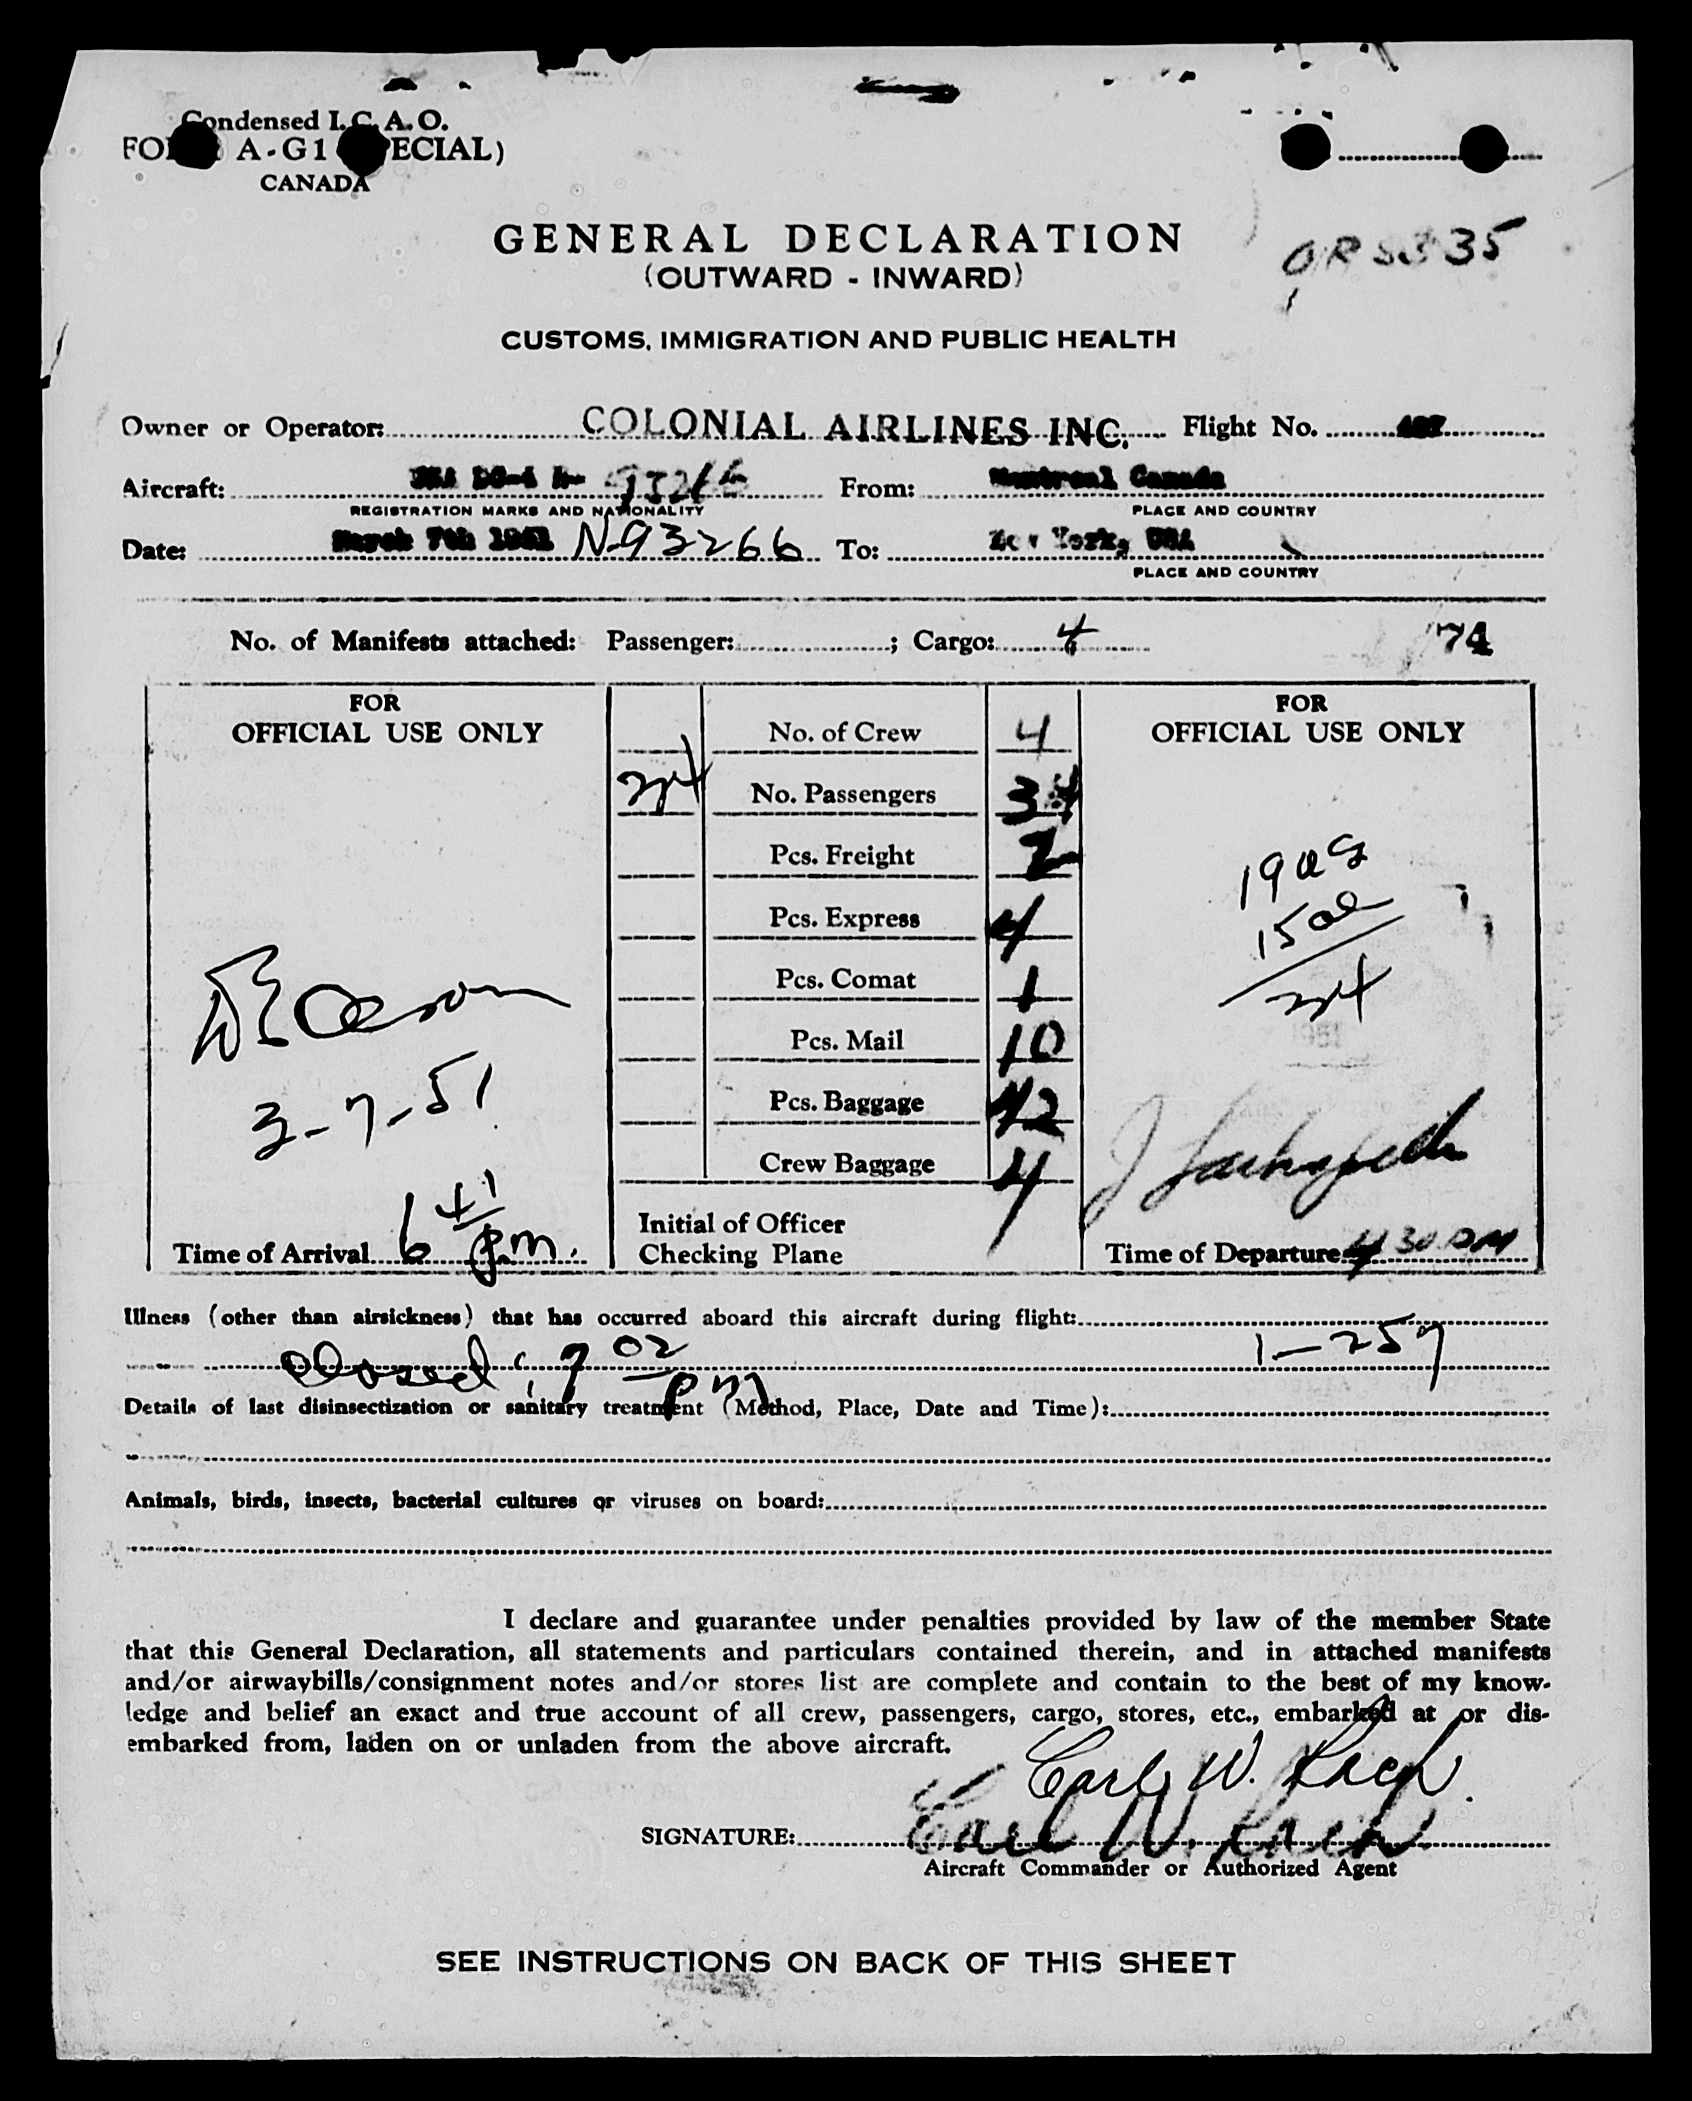 Condensed I.C.A.O.
A-G1 ECIAL)
CANADA
GENERAL DECLARATION
(OUTWARD - INWARD)
35
CUSTOMS, IMMIGRATION AND PUBLIC HEALTH
Owner or Operator: COLONIAL AIRLINES INC. Flight No.
Aircraft: From: Montreal Canada
REGISTRATION MARKS AND NATIONALITY PLACE AND COUNTRY
Date: March 7th 1951 N-93266 To: New York, USA
PLACE AND COUNTRY
No. of Manifests attached: Passenger: ; Cargo: 4 74
FOR
OFFICIAL USE ONLY
3-7-51
Time of Arrival 6 41 p.m.
No. of Crew 4
34 No. Passengers 34
Pcs. Freight 2
Pcs. Express 4
Pcs. Comat 1
Pcs. Mail 10
Pcs. Baggage 42
Crew Baggage 4
Initial of Officer
Checking Plane
FOR
OFFICIAL USE ONLY
19
15
34
Time of Departure 4 30 PM
Illness (other than airsickness) that has occurred aboard this aircraft during flight:
closed: 7 02 pm 1-257
Details of last disinsectization or sanitary treatment (Method, Place, Date and Time):
Animals, birds, insects, bacterial cultures or viruses on board:
I declare and guarantee under penalties provided by law of the member State
that this General Declaration, all statements and particulars contained therein, and in attached manifests
and/or airwaybills/consignment notes and/or stores list are complete and contain to the best of my know-
ledge and belief an exact and true account of all crew, passengers, cargo, stores, etc., embarked at or dis-
embarked from, laden on or unladen from the above aircraft.
Earl W.
SIGNATURE: Earl W.
Aircraft Commander or Authorized Agent
SEE INSTRUCTIONS ON BACK OF THIS SHEET